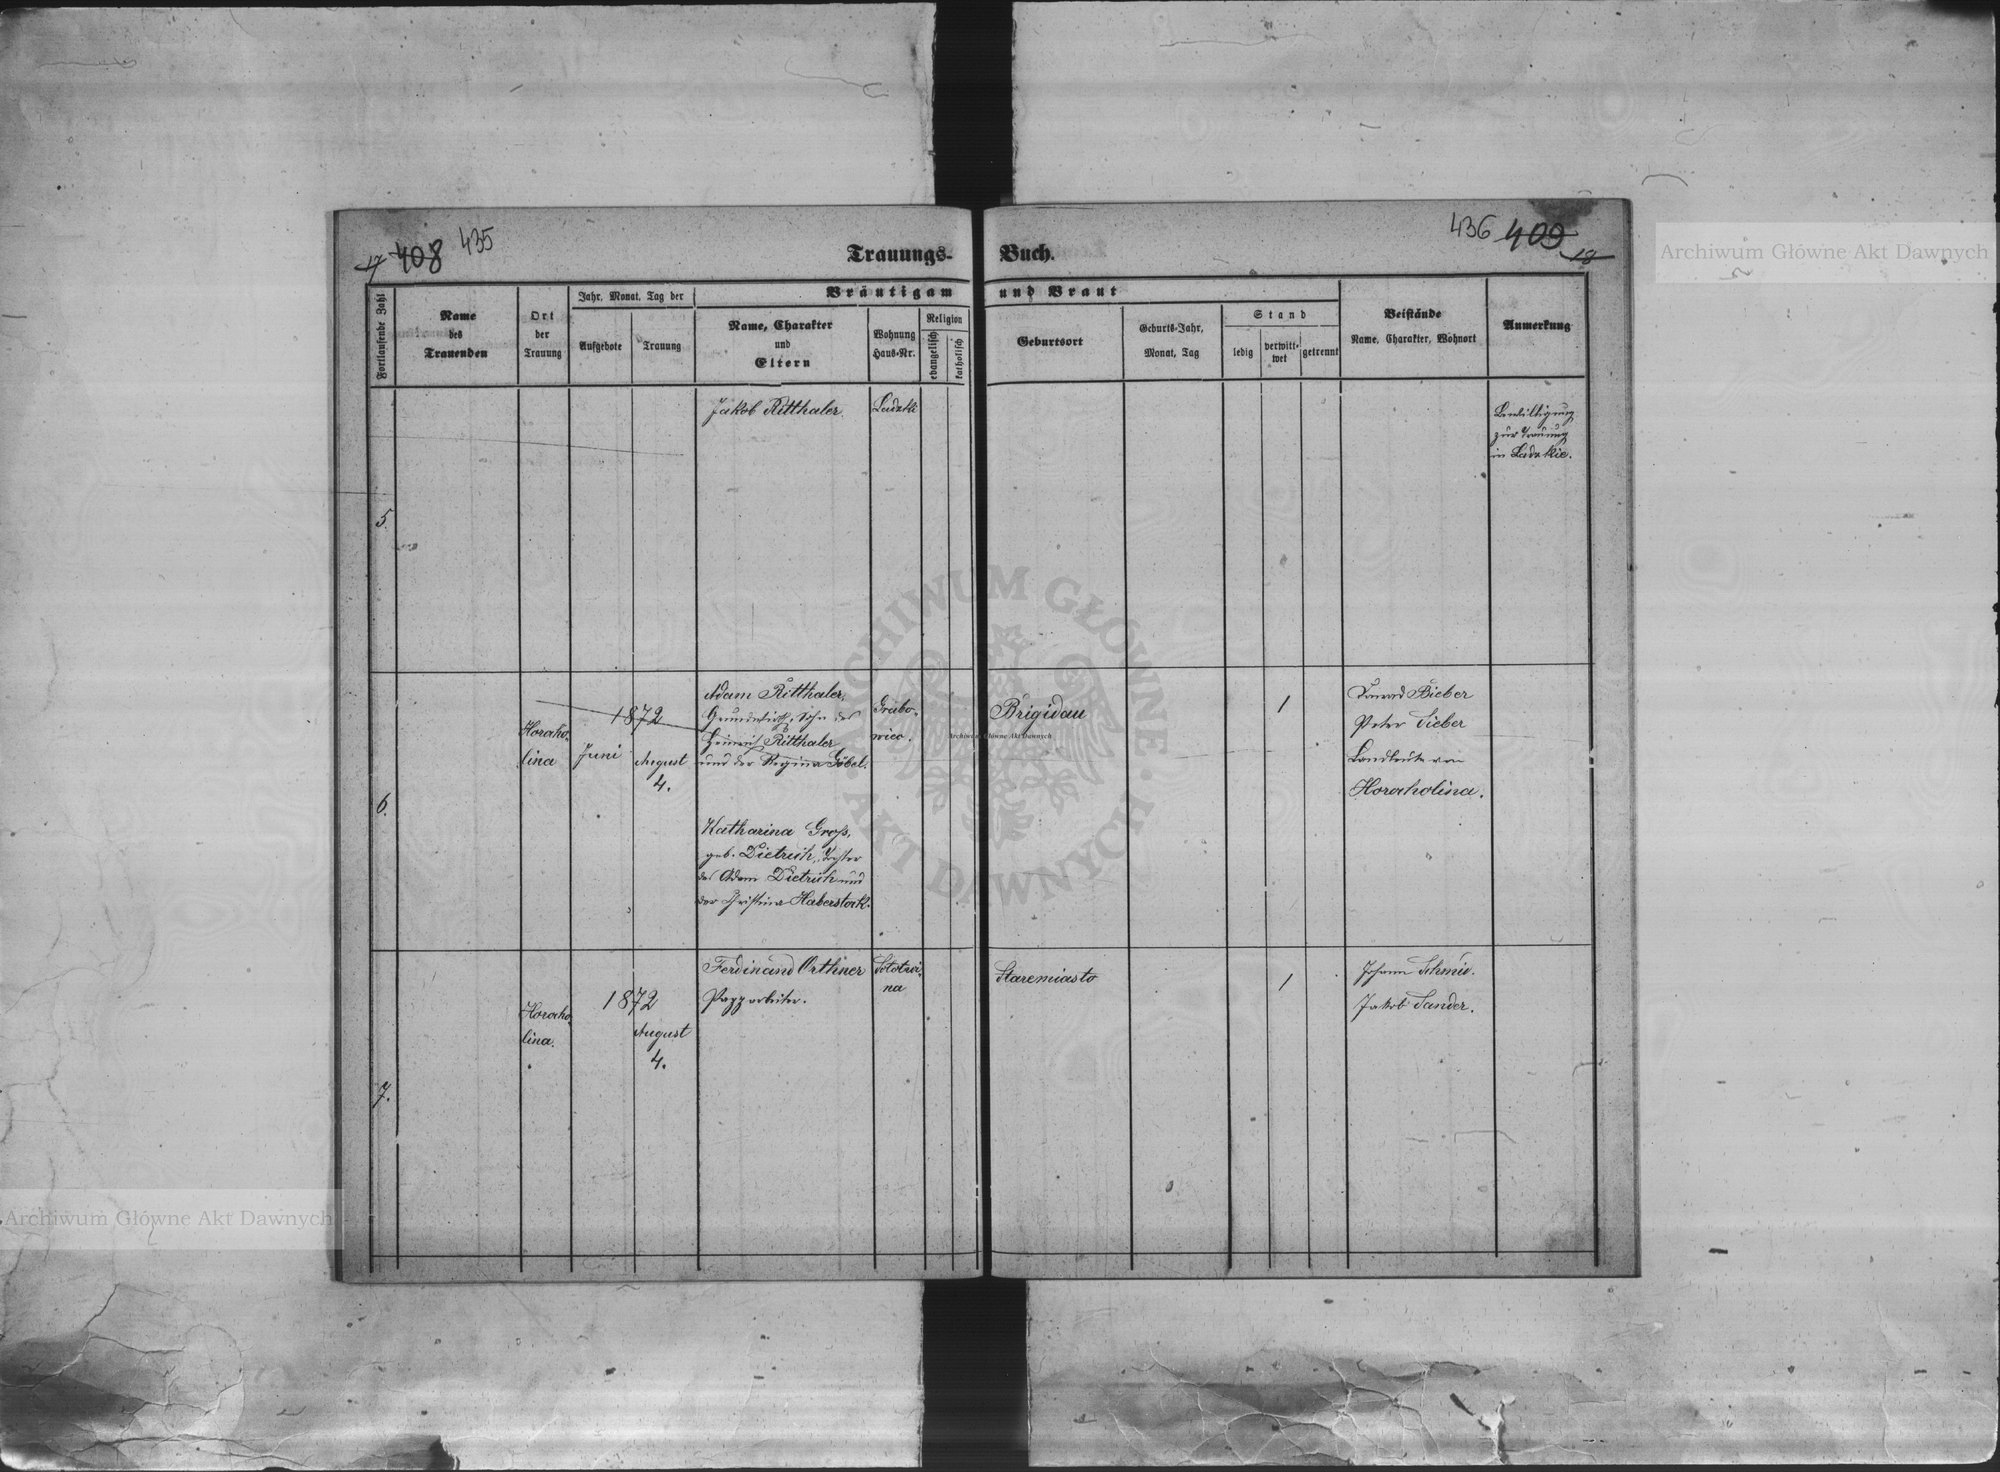 17 408 435
Trauungs-Buch.
436 409 18
Archiwum Główne Akt Dawnych
Fortlaufende Zahl
Name
des
Trauenden
Ort
der
Trauung
Jahr, Monat, Tag der
Aufgebote
Trauung
Bräutigam und Braut
Name, Charakter
und
Eltern
Wohnung
Haus-Nr.
Religion
evangelisch
katholisch
Geburtsort
Geburts-Jahr,
Monat, Tag
Stand
ledig
verwitt-
wet
getrennt
Beistände
Name, Charakter, Wohnort
Anmerkung
5.
Jakob Ritthaler
Ladzki
Bewilligung
zur Trauung
in Ladzkie.
6.
Horoho-
lina
1872
Juni
August
4.
Adam Ritthaler,
Grundwirth, Sohn des
Heinrich Ritthaler
und der Regina Göbel.
Grabo-
wiec.
Katharina Groß,
geb. Dietrich, Tochter
des Adam Dietrich und
der Christina Haberstock.
Brigidau
1
Konrad Bieber
Peter Sieber
Landleute von
Horoholina.
7.
Horoho-
lina.
1872
August
4.
Ferdinand Orthner
Papparbeiter.
Solotwi-
na
Staremiasto
1
Johann Schmid.
Jakob Sander.
ARCHIWUM GŁÓWNE AKT DAWNYCH
Archiwum Główne Akt Dawnych
Archiwum Główne Akt Dawnych